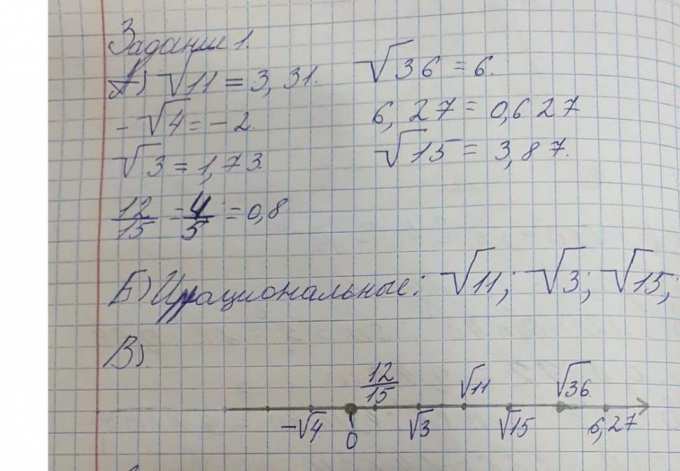 Задание 1.
А) √11 = 3,31. √36 = 6.
-√4 = -2. 6,27 = 0,627
√3 = 1,73. √15 = 3,87.
12/15 = 4/5 = 0,8
Б) Иррациональные: √11; √3; √15;
В)
12/15 √11 √36
-√4 0 √3 √15 6,27